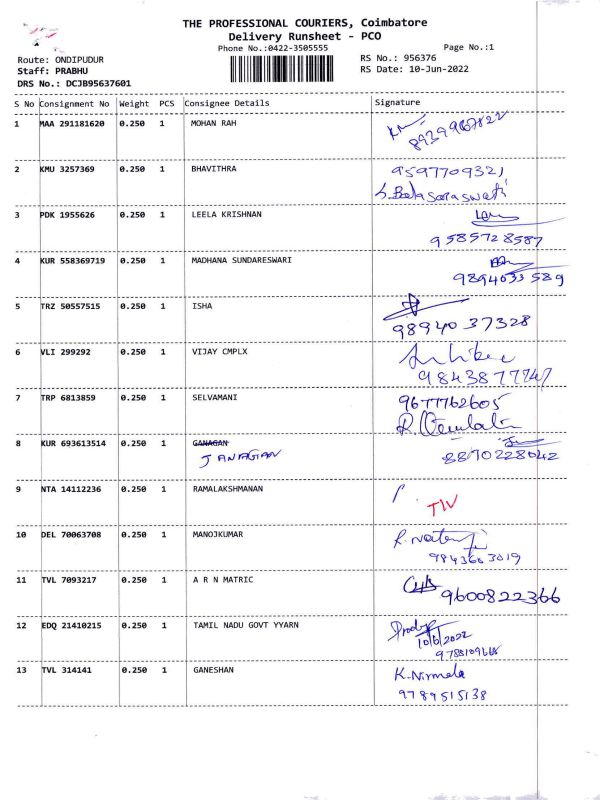 THE PROFESSIONAL COURIERS, Coimbatore
Delivery Runsheet - PCO
Phone No.:0422-3505555
Page No.:1
Route: ONDIPUDUR
RS No.: 956376
Staff: PRABHU
RS Date: 10-Jun-2022
DRS No.: DCJB95637601
S No Consignment No Weight PCS Consignee Details Signature
1 MAA 291181620 0.250 1 MOHAN RAH
2 KMU 3257369 0.250 1 BHAVITHRA 9597709321
S. Balasaraswati
3 PDK 1955626 0.250 1 LEELA KRISHNAN
9585728587
4 KUR 558369719 0.250 1 MADHANA SUNDARESWARI
9894033589
5 TRZ 50557515 0.250 1 ISHA
9894037328
6 VLI 299292 0.250 1 VIJAY CMPLX
9843877747
7 TRP 6813859 0.250 1 SELVAMANI 9677762605
8 KUR 693613514 0.250 1 GANAGAN
JANAGAN 8870228042
9 NTA 14112236 0.250 1 RAMALAKSHMANAN
10 DEL 70063708 0.250 1 MANOJKUMAR
9843663019
11 TVL 7093217 0.250 1 A R N MATRIC 9600822366
12 EDQ 21410215 0.250 1 TAMIL NADU GOVT YYARN
10/6/2022
13 TVL 314141 0.250 1 GANESHAN K. Nirmala
9789515138